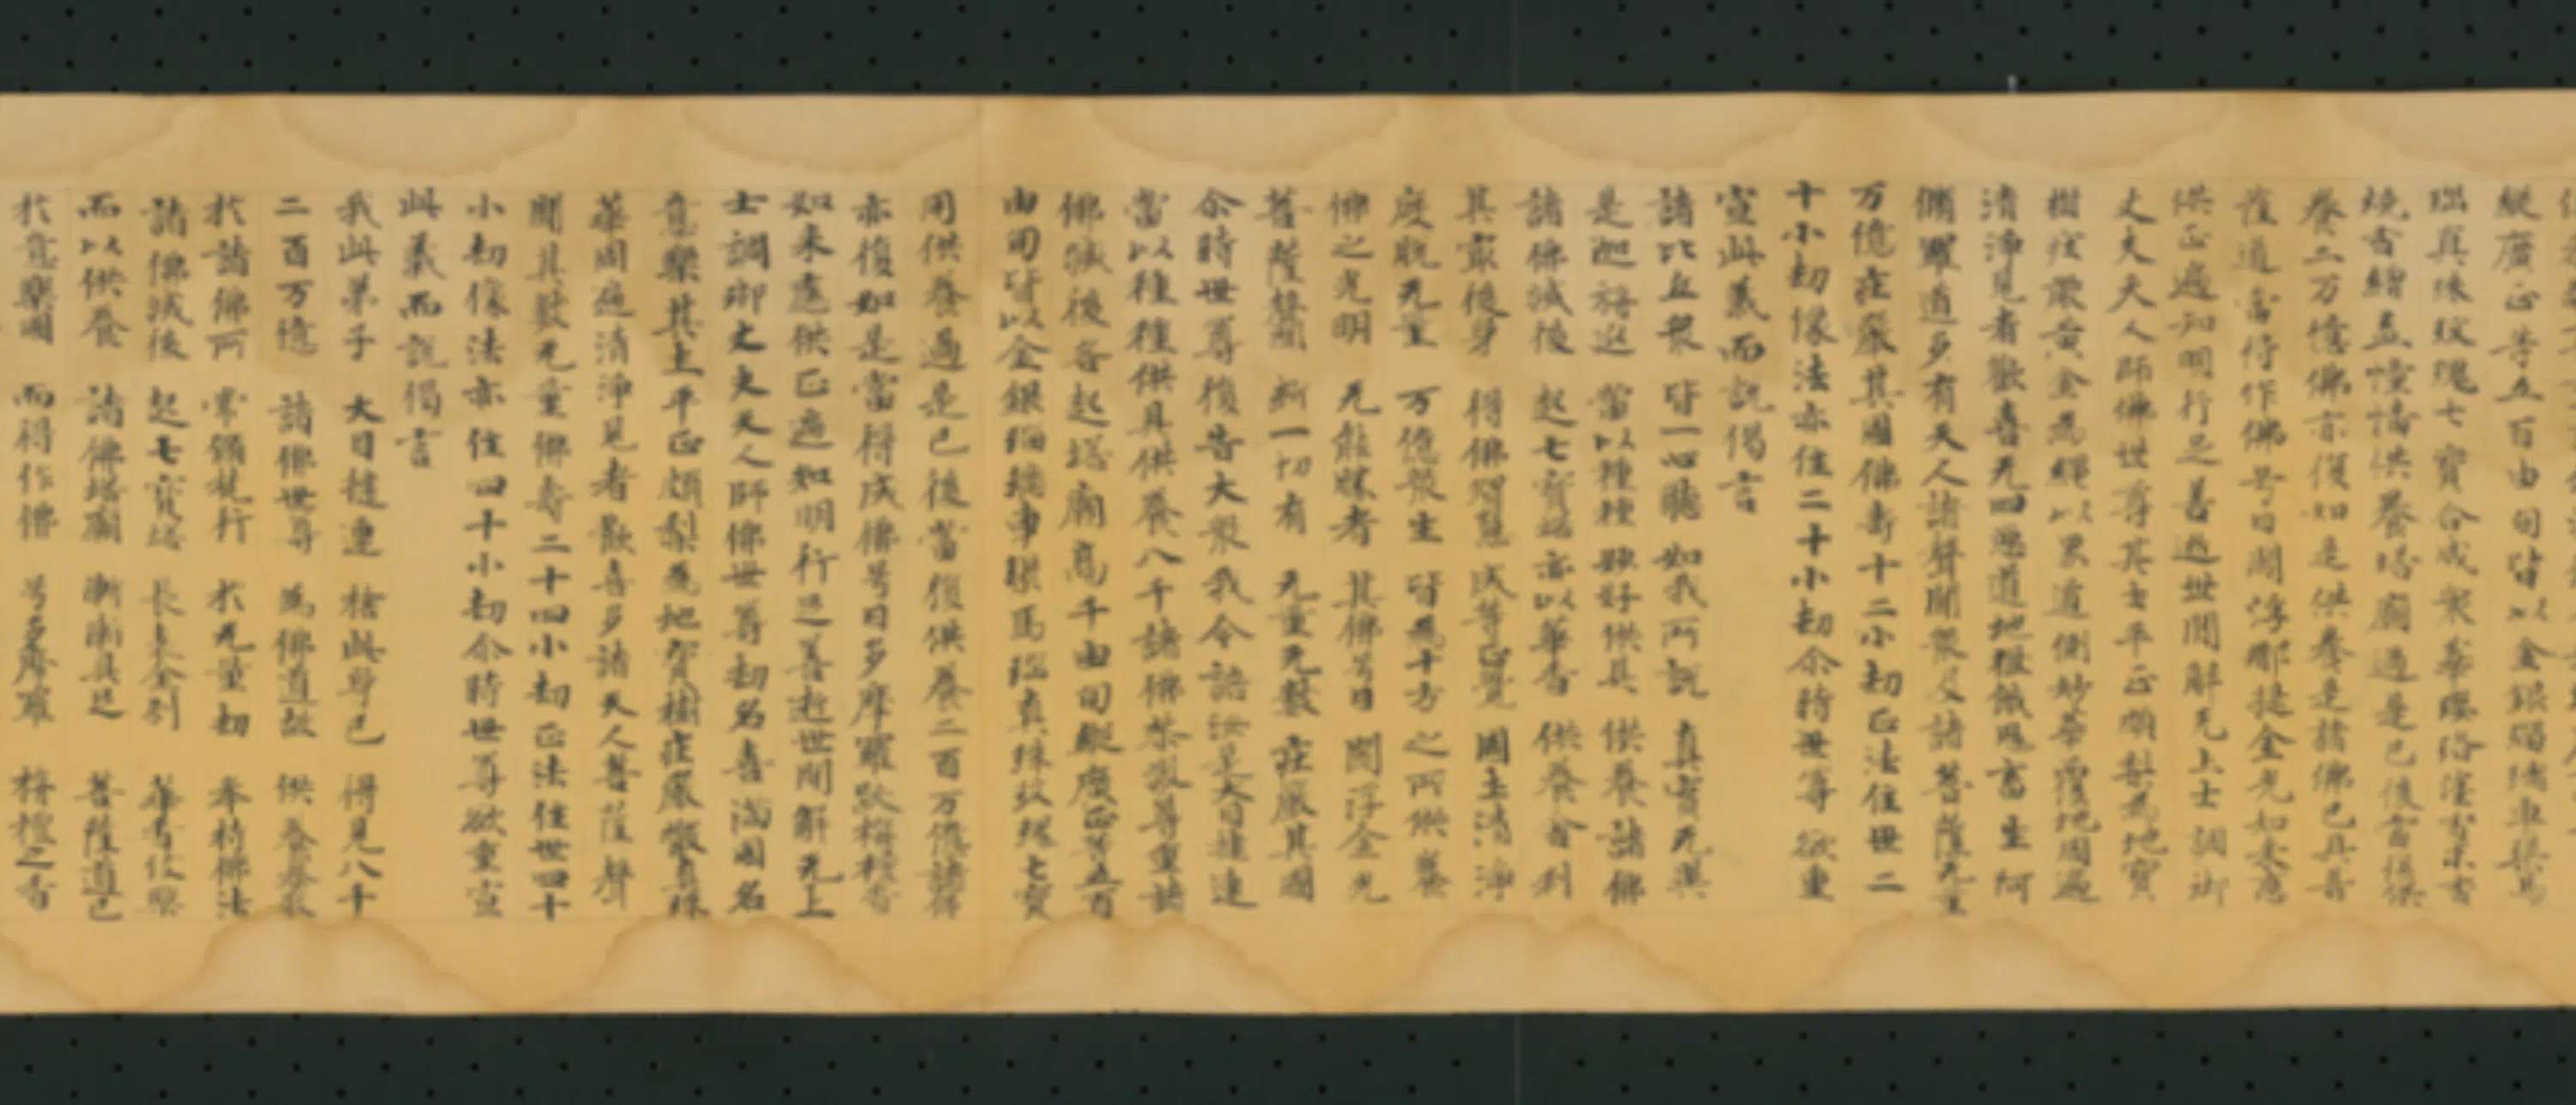 縱廣正等五百由旬皆以金銀瑠璃車𤦲馬
瑙真珠玫瑰七寶合成衆華瓔珞塗香末香
燒香繒盖幢幡供養塔廟過是已後當復供
養二万億佛亦復如是供養是諸佛已具菩
薩道當得作佛号曰閻浮那提金光如來應
供正遍知明行足善逝世間解无上士調御
丈夫天人師佛世尊其土平正頗梨為地寶
樹莊嚴黃金為繩以界道側妙華覆地周遍
清淨見者歡喜无四惡道地獄餓鬼畜生阿
脩羅道多有天人諸聲聞衆及諸菩薩无量
万億莊嚴其國佛壽十二小劫正法住世二
十小劫像法亦住二十小劫尒時世尊欲重
宣此義而說偈言
諸比丘衆 皆一心聽 如我所說 真實无異
是迦旃延 當以種種 妙好供具 供養諸佛
諸佛滅後 起七寶塔 亦以華香 供養舍利
其最後身 得佛智慧 成等正覺 國土清淨
度脫无量 万億衆生 皆為十方 之所供養
佛之光明 无能勝者 其佛号曰 閻浮金光
菩薩聲聞 斷一切有 无量无數 莊嚴其國
尒時世尊復告大衆我今語汝是大目揵連
當以種種供具供養八千諸佛恭敬尊重諸
佛滅後各起塔廟高千由旬縱廣正等五百
由旬皆以金銀瑠璃車𤦲馬瑙真珠玫瑰七寶
用供養過是已後當復供養二百万億諸佛
亦復如是當得成佛号曰多摩羅跋栴檀香
如來應供正遍知明行足善逝世間解无上
士調御丈夫天人師佛世尊劫名喜滿國名
意樂其土平正頗梨為地寶樹莊嚴散真珠
華周遍清淨見者歡喜多諸天人菩薩聲
聞其數无量佛壽二十四小劫正法住世四十
小劫像法亦住四十小劫尒時世尊欲重宣
此義而說偈言
我此弟子 大目揵連 捨此身已 得見八千
二百万億 諸佛世尊 為佛道故 供養恭敬
於諸佛所 常脩梵行 於无量劫 奉持佛法
諸佛滅後 起七寶塔 長表金刹 華香伎樂
而以供養 諸佛塔廟 漸漸具足 菩薩道已
於意樂國 而得作佛 号多摩羅 栴檀之香